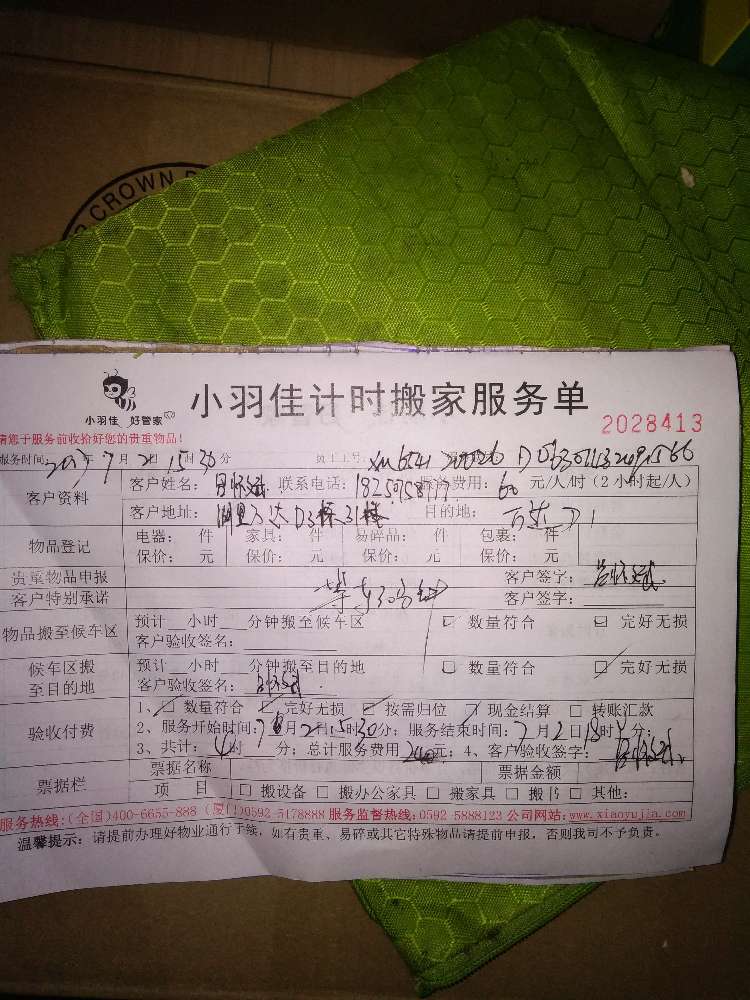 CROWN
小羽佳 好管家
小羽佳计时搬家服务单
2028413
请您于服务前收拾好您的贵重物品!
服务时间: 2017年7月2 15时30分 员工工号: xm6541
客户资料
客户姓名: 联系电话: 服务费用: 60 元/人/时(2小时起/人)
客户地址: 湖里万达D3栋31楼 目的地:
物品登记
电器: 件 家具: 件 易碎品: 件 包裹: 件
保价: 元 保价: 元 保价: 元 保价: 元
贵重物品申报 客户签字:
客户特别承诺 客户签字:
物品搬至候车区
预计 小时 分钟搬至候车区 数量符合 完好无损
客户验收签名:
候车区搬至目的地
预计 小时 分钟搬至目的地 数量符合 完好无损
客户验收签名:
验收付费
1、 数量符合 完好无损 按需归位 现金结算 转账汇款
2、服务开始时间: 7月2日15时30分; 服务结束时间: 7月2日18时 分;
3、共计: 4时 分; 总计服务费用 240元; 4、客户验收签字:
票据栏
票据名称 票据金额
项 目 搬设备 搬办公家具 搬家具 搬书 其他:
服务热线:(全国)400-6655-888 (厦门)0592-5178888 服务监督热线:0592-5888123 公司网站:www.xiaoyujia.com
温馨提示: 请提前办理好物业通行手续, 如有贵重、易碎或其它特殊物品请提前申报, 否则我司不予负责。